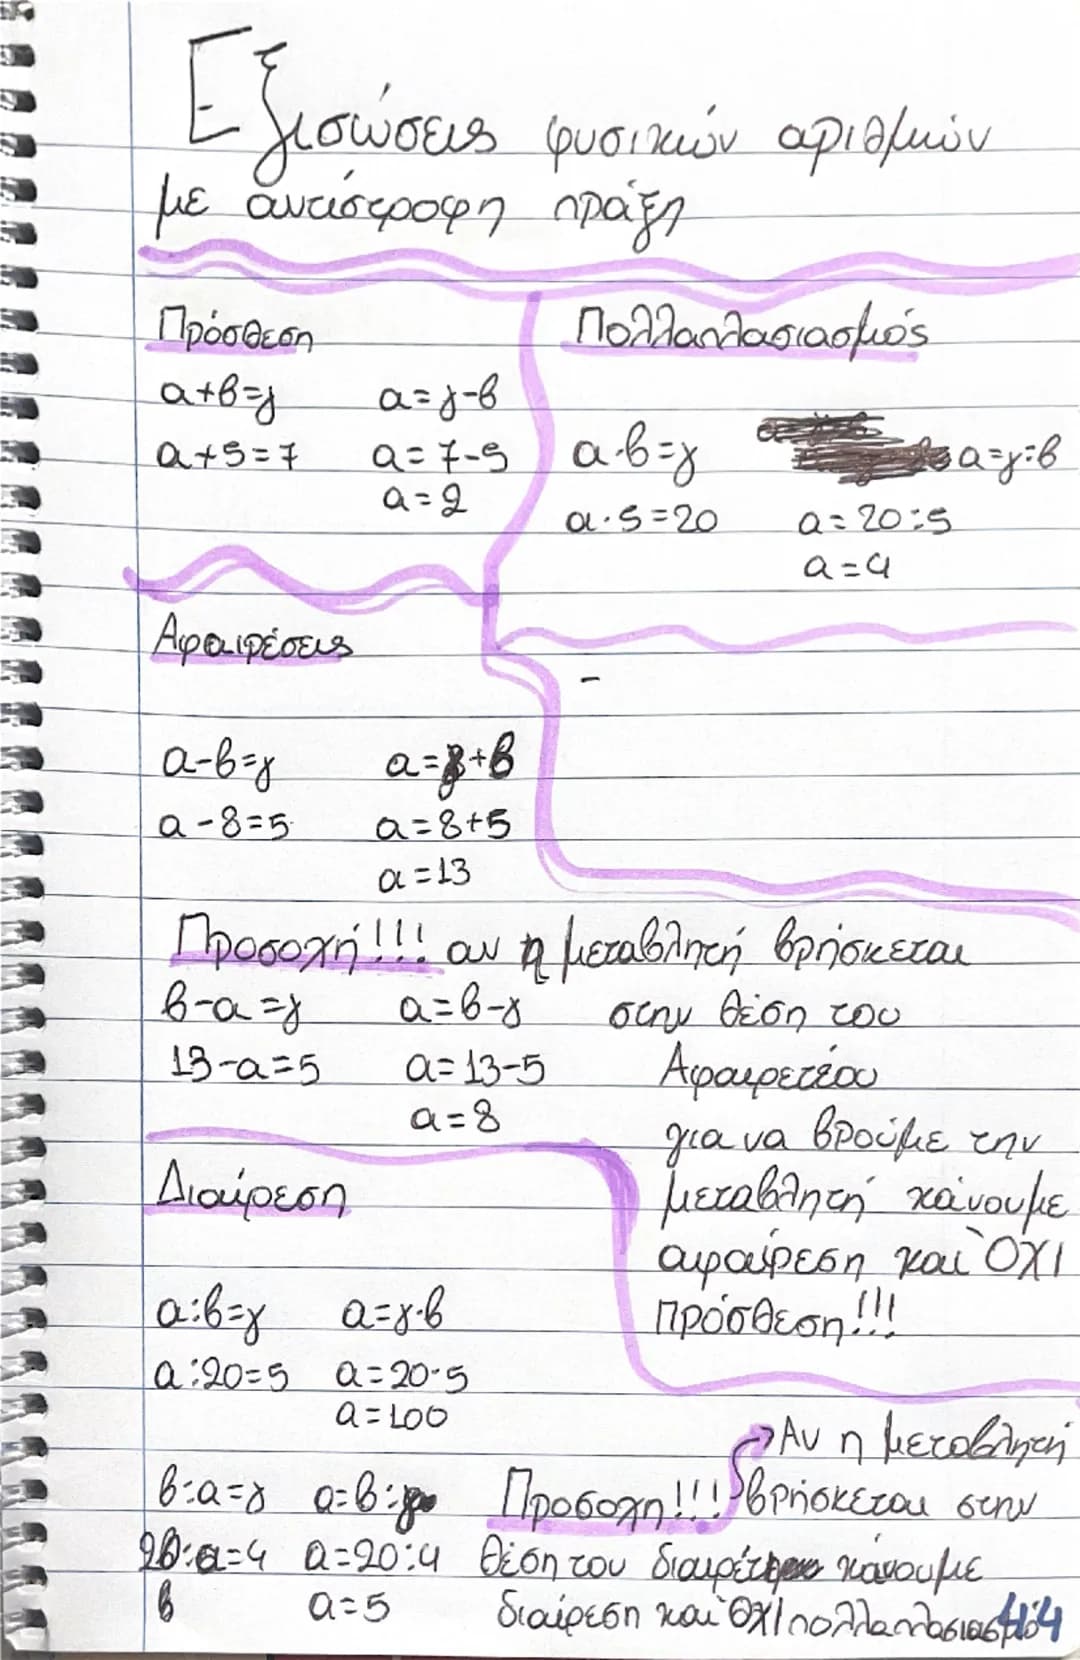 Εξισώσεις φυσικών αριθμών
με αντίστροφη πράξη
Πρόσθεση
α+β=γ α=γ-β
α+5=7 α=7-5
α=2
Πολλαπλασιασμός
α·β=γ α=γ:β
α·5=20 α=20:5
α=4
Αφαιρέσεις
-
α-β=γ α=γ+β
α-8=5 α=8+5
α=13
Προσοχή!!! αν η μεταβλητή βρήσκεται
β-α=γ α=β-γ στην θέση του
13-α=5 α=13-5 Αφαιρετέου
α=8
για να βρούμε την
μεταβλητή κάνουμε
αφαίρεση και ΌΧΙ
πρόσθεση!!!
Διαίρεση
α:β=γ α=γ·β
α:20=5 α=20·5
α=100
Αν η μεταβλητή
β:α=γ α=β:γ Προσοχη!!! βρήσκεται στην
20:α=4 α=20:4 θέση του διαιρέτη κάνουμε
β α=5 διαίρεση και ΌΧΙ πολλαπλασιασμό
44